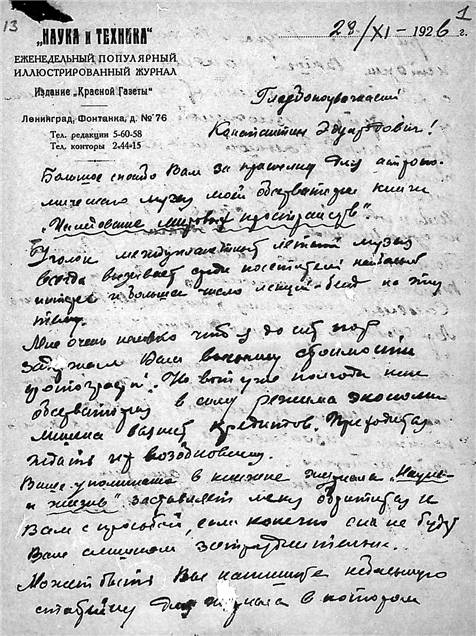 13
1
„НАУКА и ТЕХНИКА"
ЕЖЕНЕДЕЛЬНЫЙ ПОПУЛЯРНЫЙ
ИЛЛЮСТРИРОВАННЫЙ ЖУРНАЛ
Издание „Красной Газеты"
Ленинград, Фонтанка, д. № 76
Тел. редакции 5-60-58
Тел. конторы 2-44-15
28/XI – 1926 г.
Глубокоуважаемый
Константин Эдуардович!
Большое спасибо Вам за присылку для астроно-
мического музея моей обсерватории книги
„Исследование мировых пространств"
Уголок междупланетный музея
всегда вызывает среди посетителей
интерес и большое число лекций-бесед на эту
тему.
Мне очень что я до сих пор
Вам стоимости
Но вот уже полгода
обсерватория в силу режима экономии
лишена кредитов. Приходится
ждать их
Ваше упоминание в книжке журнала „Наука
и жизнь" заставляет меня обратиться к
Вам с просьбой, если конечно она не будет
Вам слишком затруднительна.
Может быть Вы напишите небольшую
статейку для журнала в котором